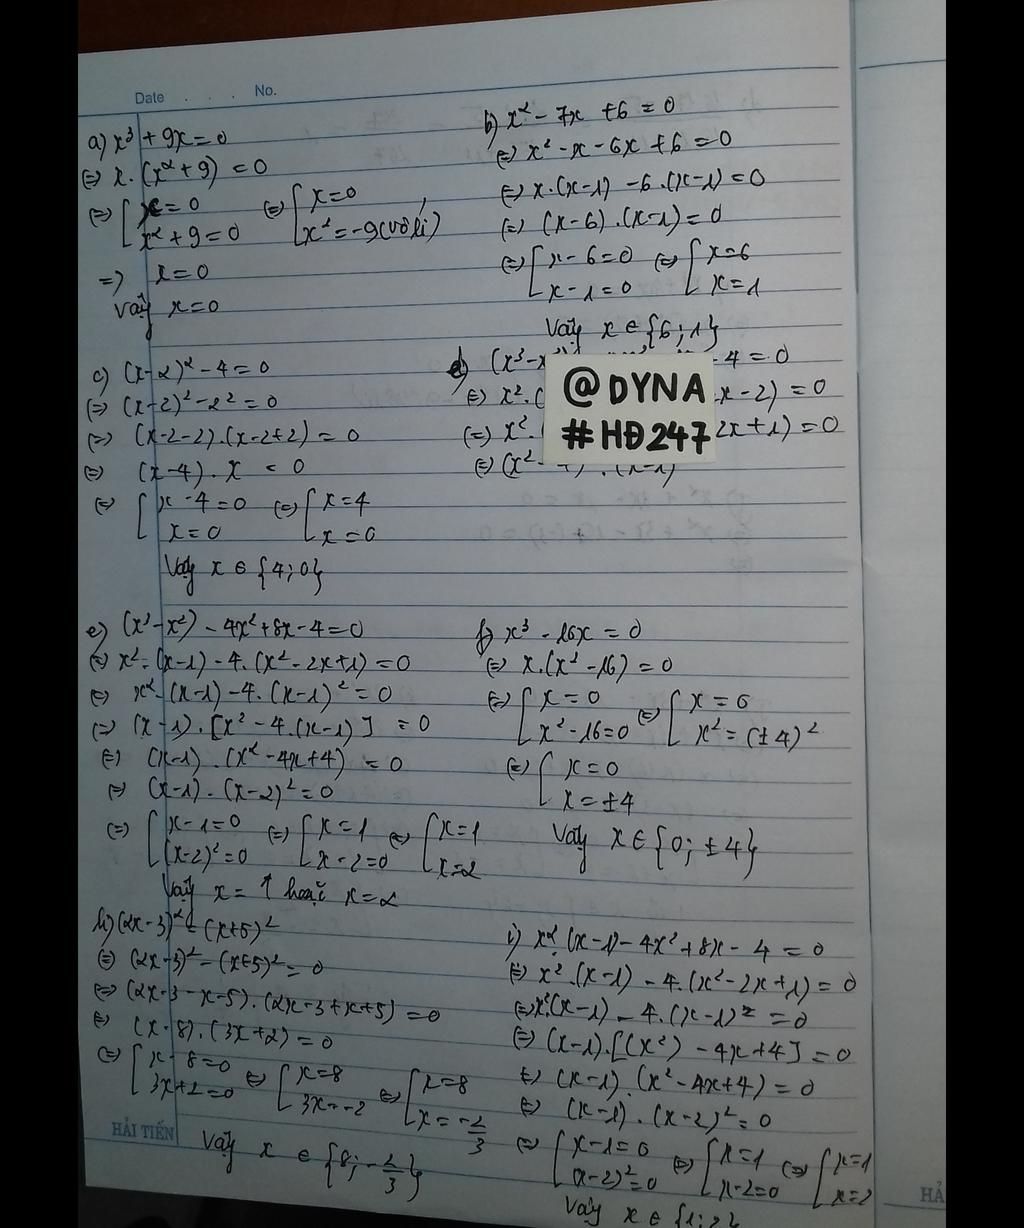 Date . . . No.
a) x³ + 9x = 0
(=) x.(x² + 9) = 0
(=) [ x = 0 (=) [ x = 0
x² + 9 = 0 x² = -9 (vô lí)
=) x = 0
Vậy x = 0
b) x² - 7x + 6 = 0
(=) x² - x - 6x + 6 = 0
(=) x.(x-1) - 6.(x-1) = 0
(=) (x-6).(x-1) = 0
(=) [ x - 6 = 0 (=) [ x = 6
x - 1 = 0 x = 1
Vậy x ∈ {6; 1}
c) (x-2)² - 4 = 0
(=) (x-2)² - 2² = 0
(=) (x-2-2).(x-2+2) = 0
(=) (x-4).x = 0
(=) [ x - 4 = 0 (=) [ x = 4
x = 0 x = 0
Vậy x ∈ {4; 0}
d) (x³ - x - 4 = 0
(=) x².( x - 2) = 0
(=) x². 2x + 1) = 0
(=) (x² -
@DYNA
#HĐ247
e) (x³ - x²) - 4x² + 8x - 4 = 0
(=) x².(x-1) - 4.(x² - 2x + 1) = 0
(=) x².(x-1) - 4.(x-1)² = 0
(=) (x-1).[x² - 4.(x-1)] = 0
(=) (x-1).(x² - 4x + 4) = 0
(=) (x-1).(x-2)² = 0
(=) [ x - 1 = 0 (=) [ x = 1 (=) [ x = 1
(x-2)² = 0 x - 2 = 0 x = 2
Vậy x = 1 hoặc x = 2
f) x³ - 16x = 0
(=) x.(x² - 16) = 0
(=) [ x = 0 (=) [ x = 0
x² - 16 = 0 x² = (±4)²
(=) [ x = 0
x = ±4
Vậy x ∈ {0; ±4}
h) (2x-3)² = (x+5)²
(=) (2x-3)² - (x+5)² = 0
(=) (2x-3-x-5).(2x-3+x+5) = 0
(=) (x-8).(3x+2) = 0
(=) [ x - 8 = 0 (=) [ x = 8 (=) [ x = 8
3x + 2 = 0 3x = -2 x = -2/3
Vậy x ∈ {8; -2/3}
i) x².(x-1) - 4x² + 8x - 4 = 0
(=) x².(x-1) - 4.(x² - 2x + 1) = 0
(=) x².(x-1) - 4.(x-1)² = 0
(=) (x-1).[(x²) - 4x + 4] = 0
(=) (x-1).(x² - 4x + 4) = 0
(=) (x-1).(x-2)² = 0
(=) [ x - 1 = 0 (=) [ x = 1 (=) [ x = 1
(x-2)² = 0 x - 2 = 0 x = 2
Vậy x ∈ {1; 2}
HẢI TIẾN
HẢ